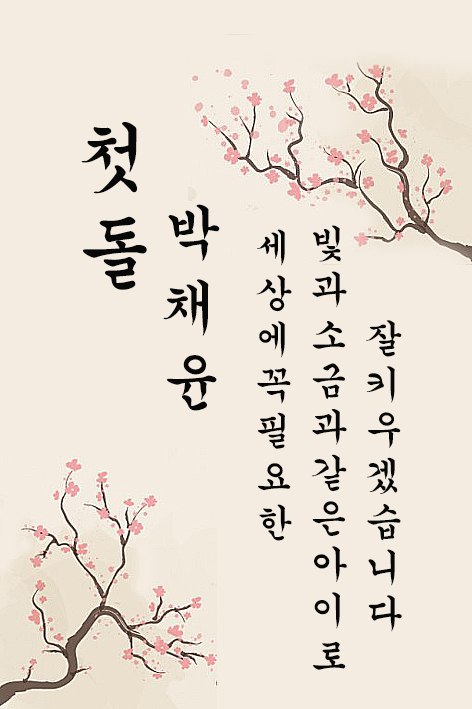 첫돌
박채윤
세상에꼭필요한
빛과소금과같은아이로
잘키우겠습니다